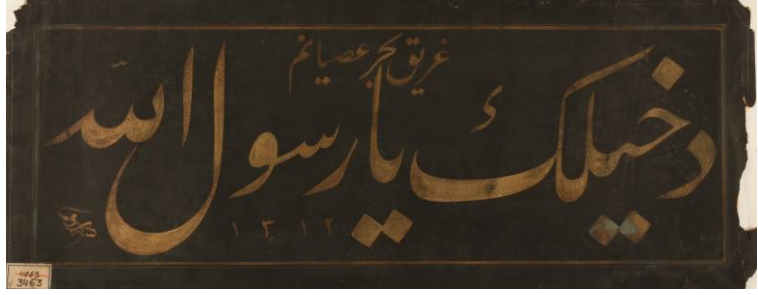 غريق بحر عصيانم
دخيلك يا رسول الله
١٣١٢
4063
3463